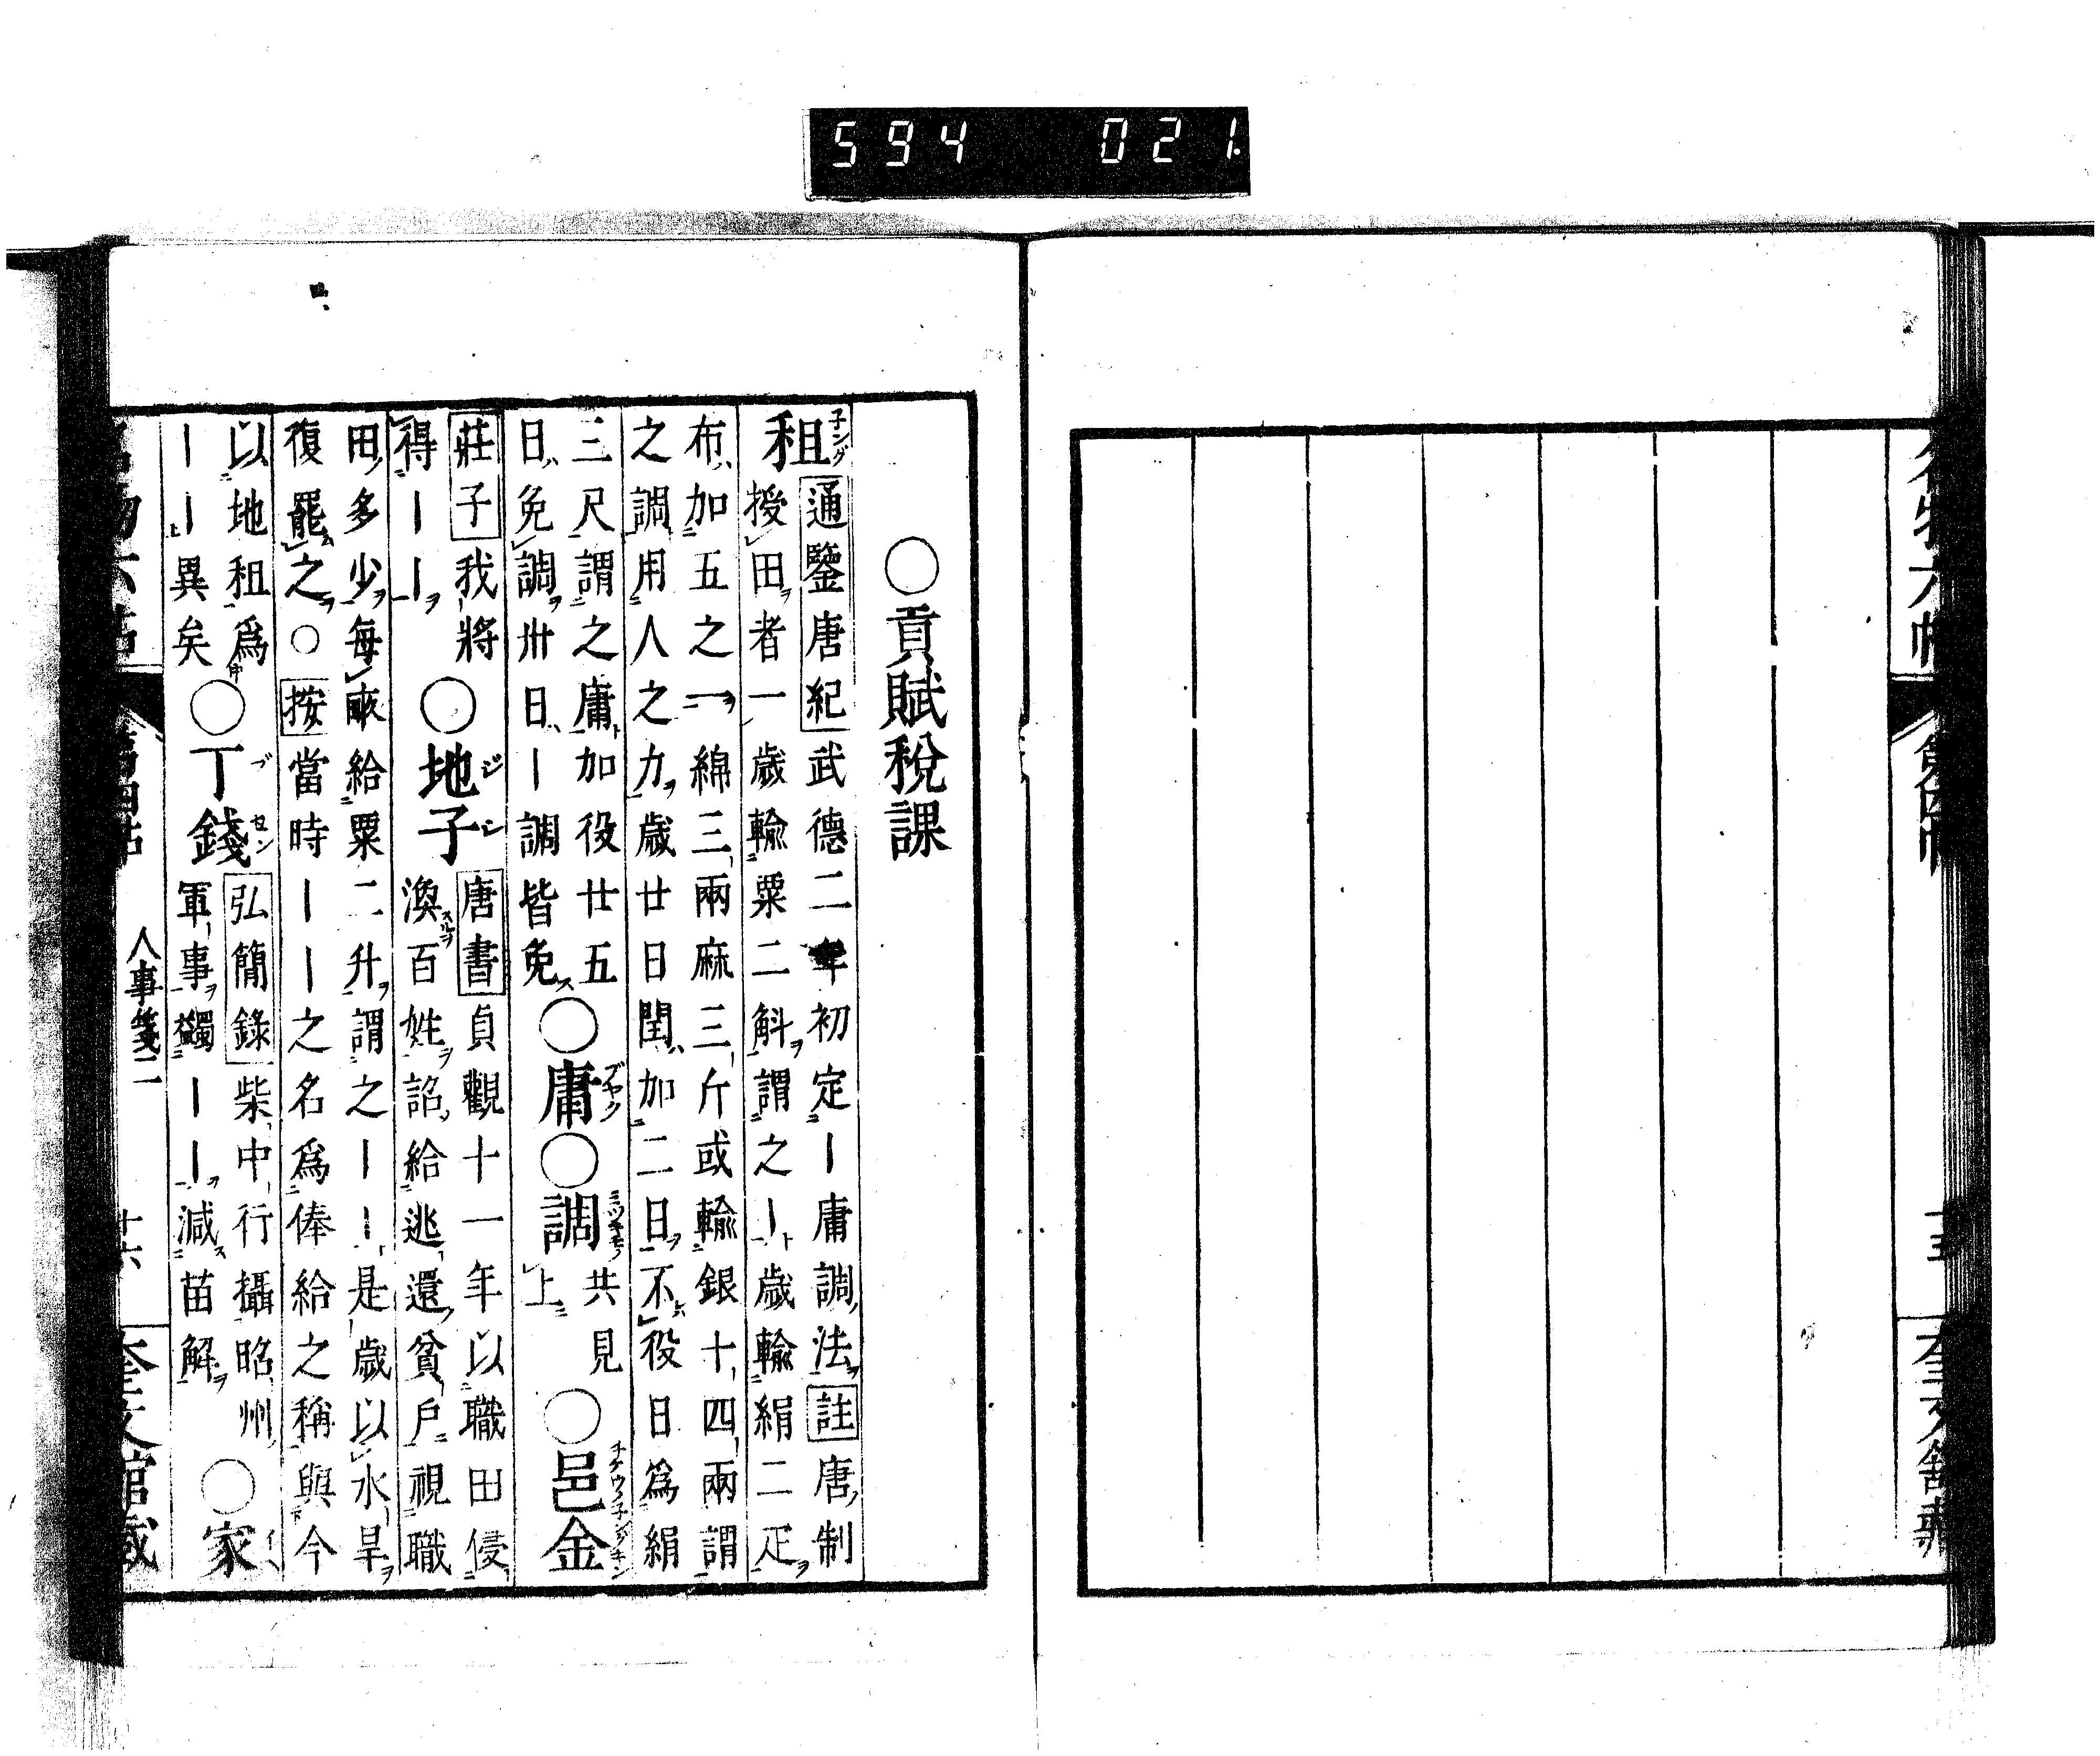 名物六帖
第四帖
十五
奎文館蔵
○貢賦稅課
租
通鑒唐紀武德二年初定｜庸調法註唐制
授田者一歲輸粟二斛謂之｜歲輸絹二疋
布加五之一綿三兩麻三斤或輸銀十四兩謂
之調用人之力歲廿日閏加二日不役日爲絹
三尺謂之庸加役廿五
日免調卅日｜調皆免
○庸
ブヤク
○調
共見
上
○邑金
莊子我將
得｜｜
○地子
ジシ
唐書貞觀十一年以職田侵
渙百姓詔給逃還貧戶視職
田多少每畝給粟二升謂之｜｜是歲以水旱
復罷之○按當時｜｜之名爲俸給之稱與今
以地租爲
｜｜異矣
○丁錢
ブセン
弘簡錄柴中行攝昭州
軍事蠲｜｜減苗解
○家
人事箋二
十六
奎文館蔵
594 021